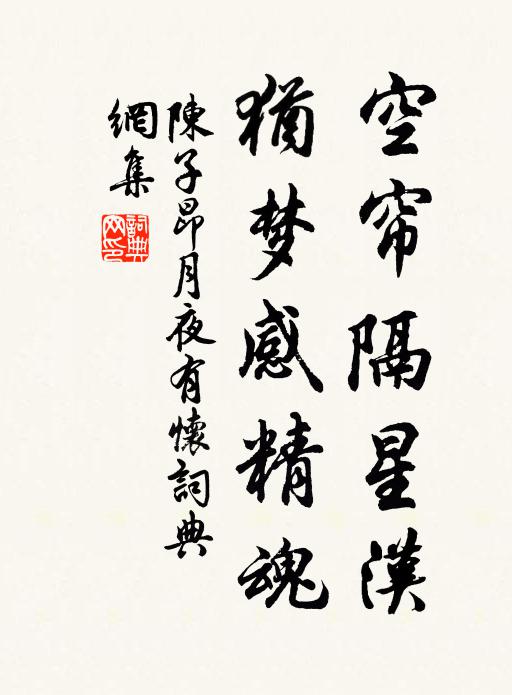 空帘隔星漢
猶梦感精魂
陳子昂月夜有懷詞典
網集
詞典
网印